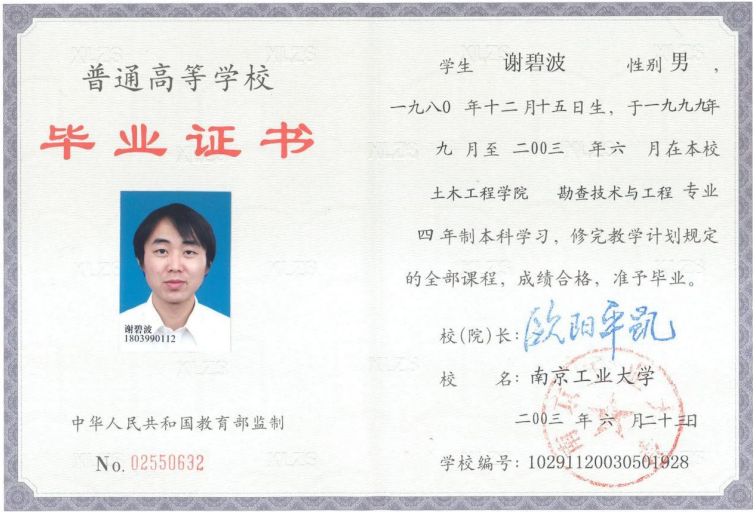 普通高等学校
毕业证书
谢碧波
1803990112
中华人民共和国教育部监制
No. 02550632
学生 谢碧波 性别 男 ，
一九八〇 年十二月十五日生，于一九九九年
九 月至 二〇〇三 年六 月在本校
土木工程学院 勘查技术与工程 专业
四 年制本科学习，修完教学计划规定
的全部课程，成绩合格，准予毕业。
校(院)长：欧阳平凯
校 名：南京工业大学
二〇〇三 年 六 月二十三日
学校编号：10291120030501928